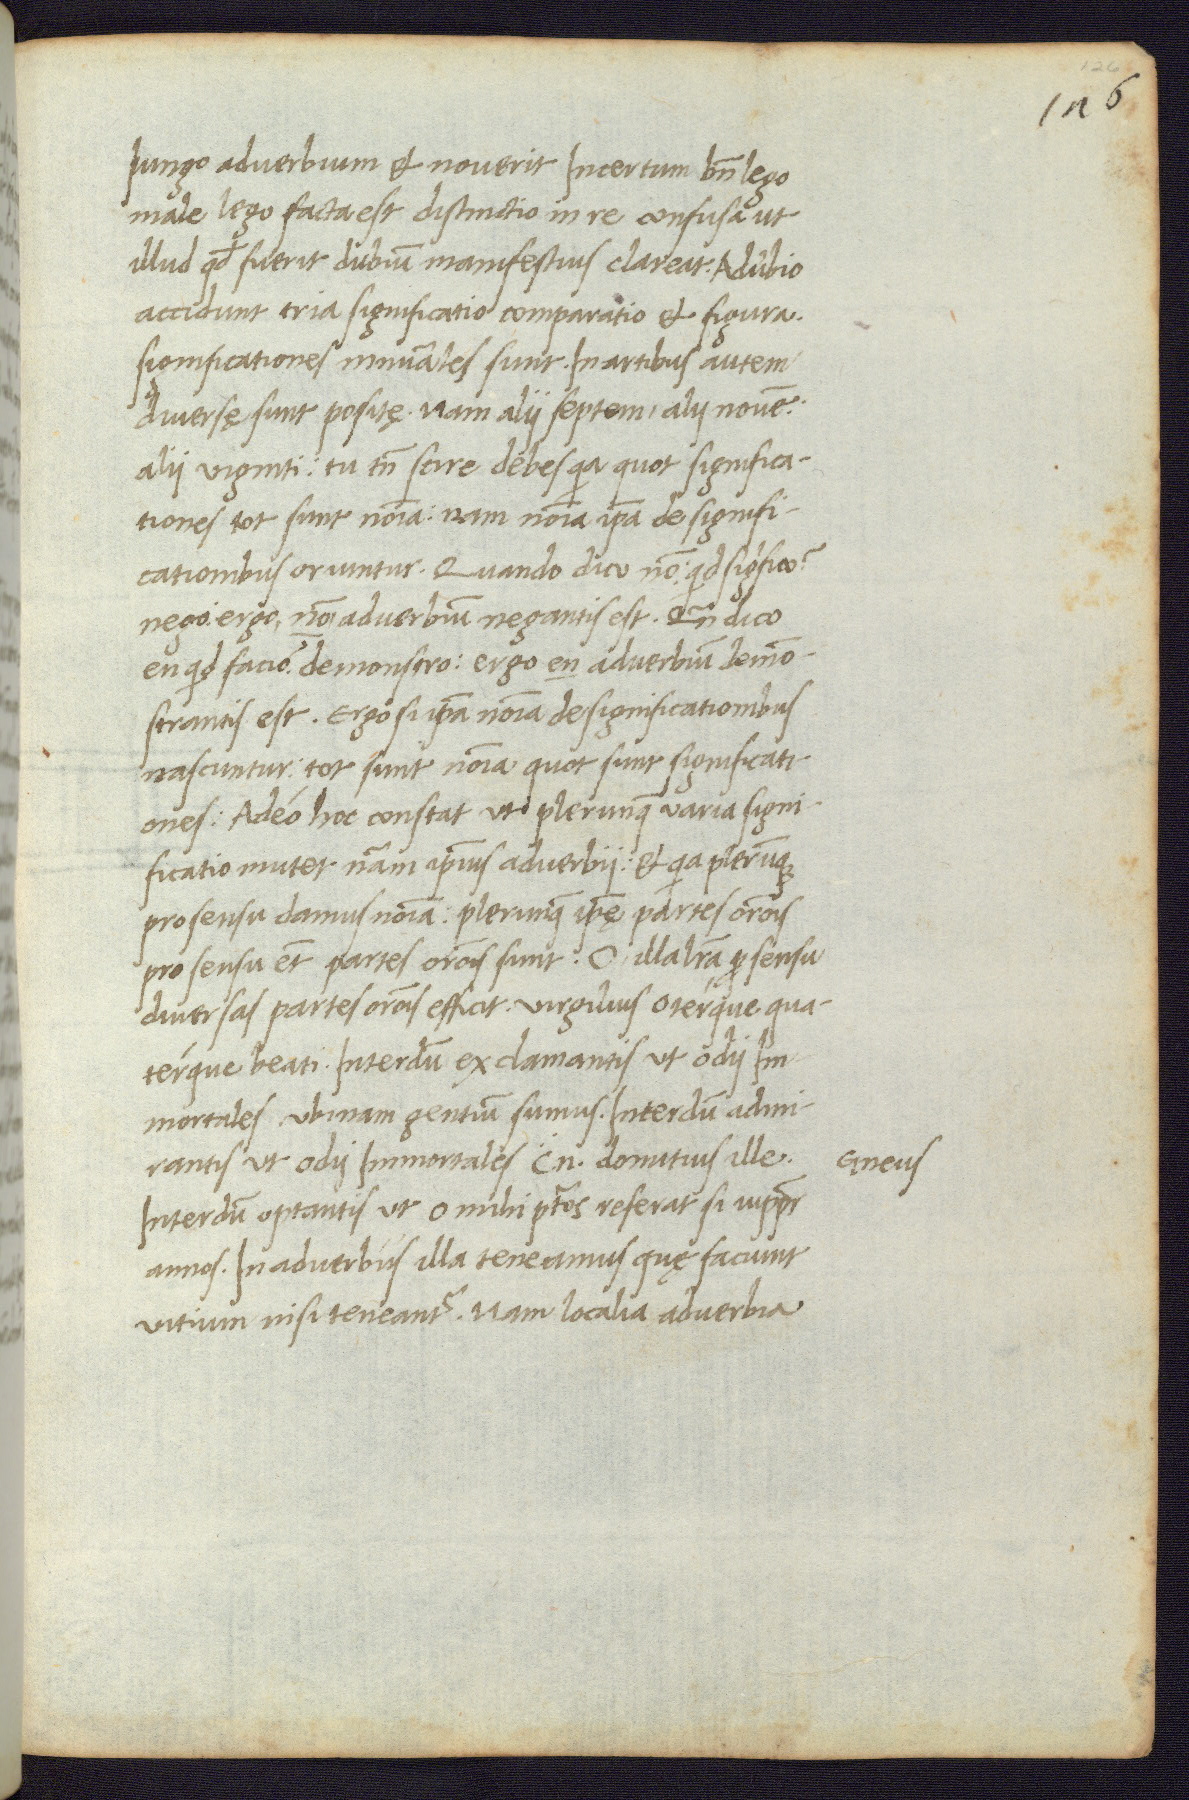 126
126
Iungo adverbium & noverit Incertum bn̄ lego
male lego facta est distinctio in re confusa ut
illud qđ fuerit dubiū manifestius clareat. Adūbio
accidunt tria significatio comparatio & figura.
significationes innūales sunt. In artibus autem
diversę sunt positę. Nam alij septem, alij novē:
alij viginti: tu tn̄ scire debes qa quot significa-
tiones tot sunt noīa: nam noīa ipa de signifi-
cationibus oriuntur. Quando dico nō: qd significo?
nego: ergo, nō, adverbiū negantis est. Qn̄ dico
en qd facio? demonstro: ergo en adverbiū demō-
strantis est. Ergo si ipa noīa de significationibus
nascuntur: tot sunt noīa quot sunt significati-
ones: Adeó hoc constat ut plerunq varia signi-
ficatio mutet nām ipius adverbij: & qa plerūq
pro sensu damus noīa: plerunq ipę partes orōis
pro sensu et̄ partes orōis sunt. O illa lr̄a p sensu
diversas partes orōis efficit. Virgilius O térque qua-
térque beati. Interdū exclamantis ut o dij Im-
mortales ubinam gentiū sumus. Interdū admi-
rantis ut o dij Immortales Cn. domitius ille.
Gneus
Interdū optantis ut o mihi pt̄os referat si iuppr
annos. In adverbiis illa teneamus quę faciunt
vitium nisi teneant̃. Nam localia adverbia